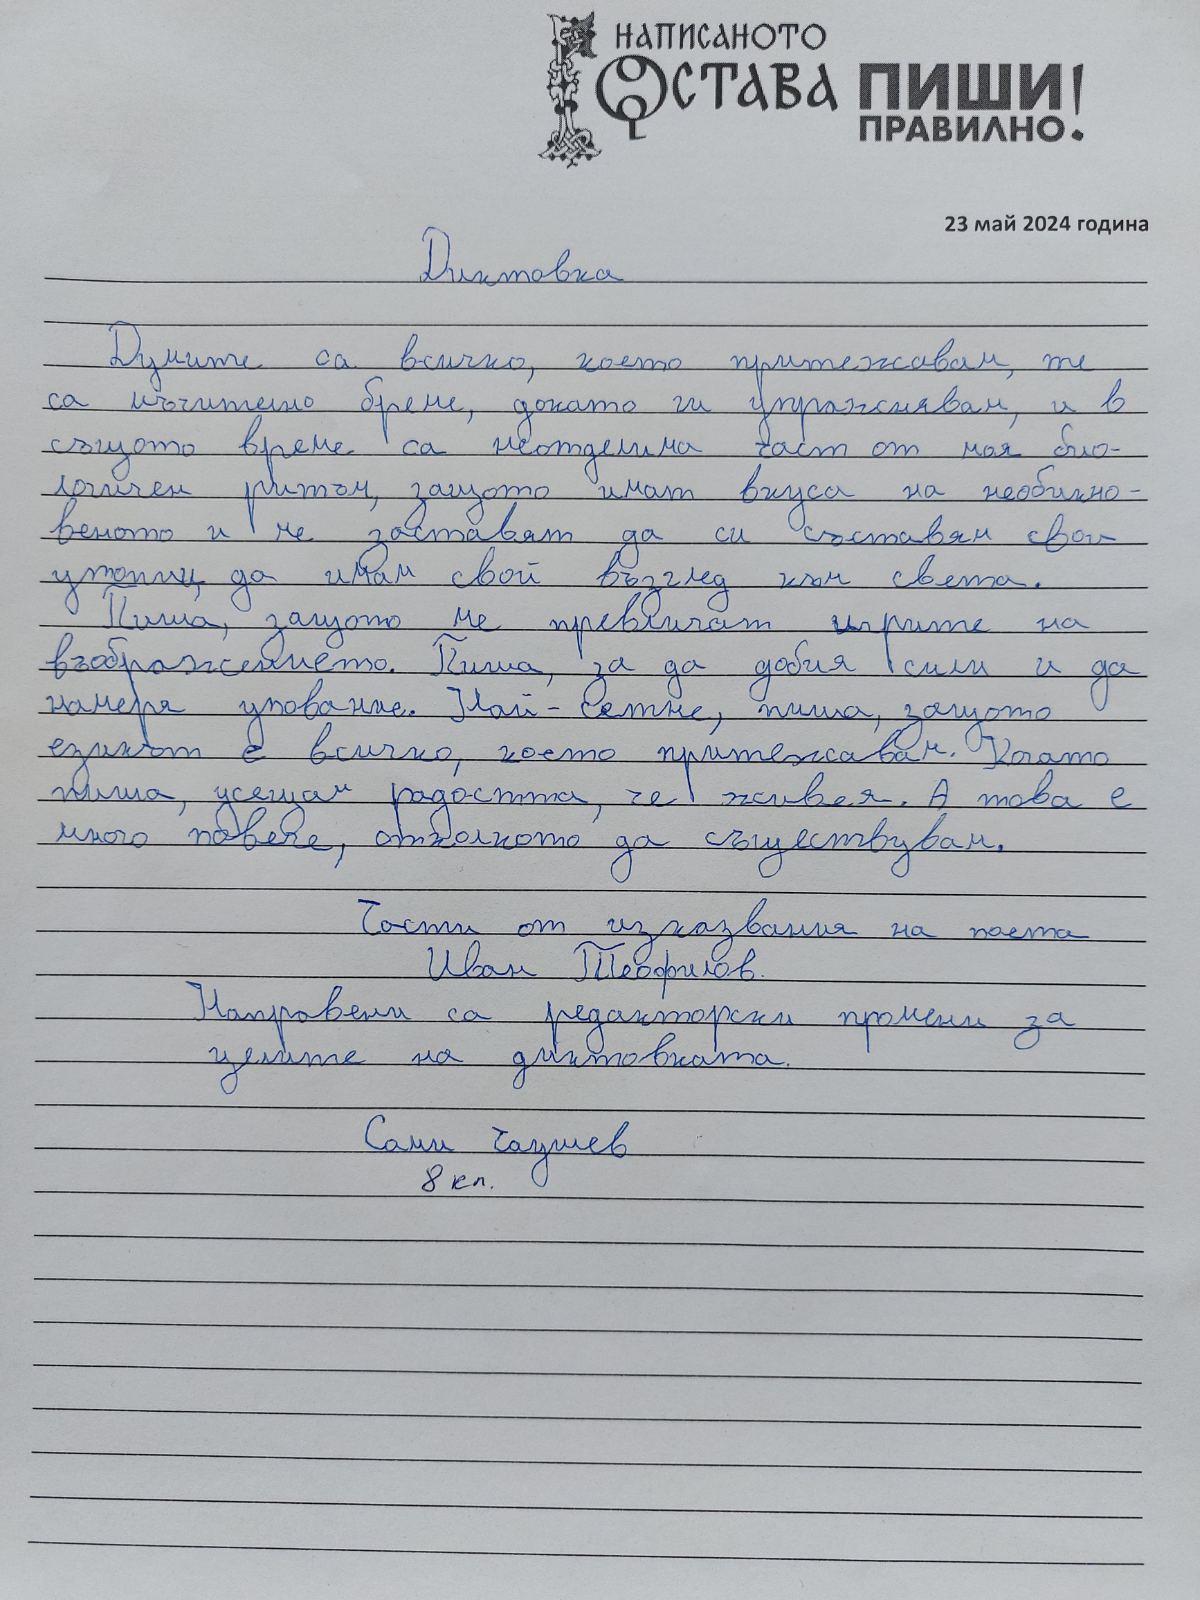 НАПИСАНОТО
ОСТАВА ПИШИ
ПРАВИЛНО!
23 май 2024 година
Диктовка
Думите са всичко, което притежавам, те
са мъчително бреме, докато ги упражнявам, и в
същото време са неотделима част от моя био-
логичен ритъм, защото имат вкуса на необикно-
веното и ме заставят да си съставям свои
утопии, да имам свой възглед към света.
Пиша, защото ме превличат игрите на
въображението. Пиша, за да добия сили и да
намеря упование. Най-сетне, пиша, защото
езикът е всичко, което притежавам. Когато
пиша, усещам радостта, че живея. А това е
много повече, отколкото да съществувам.
Части от изказвания на поета
Иван Теофилов.
Направени са редакторски промени за
целите на диктовката.
Сами Чаушев
8 кл.